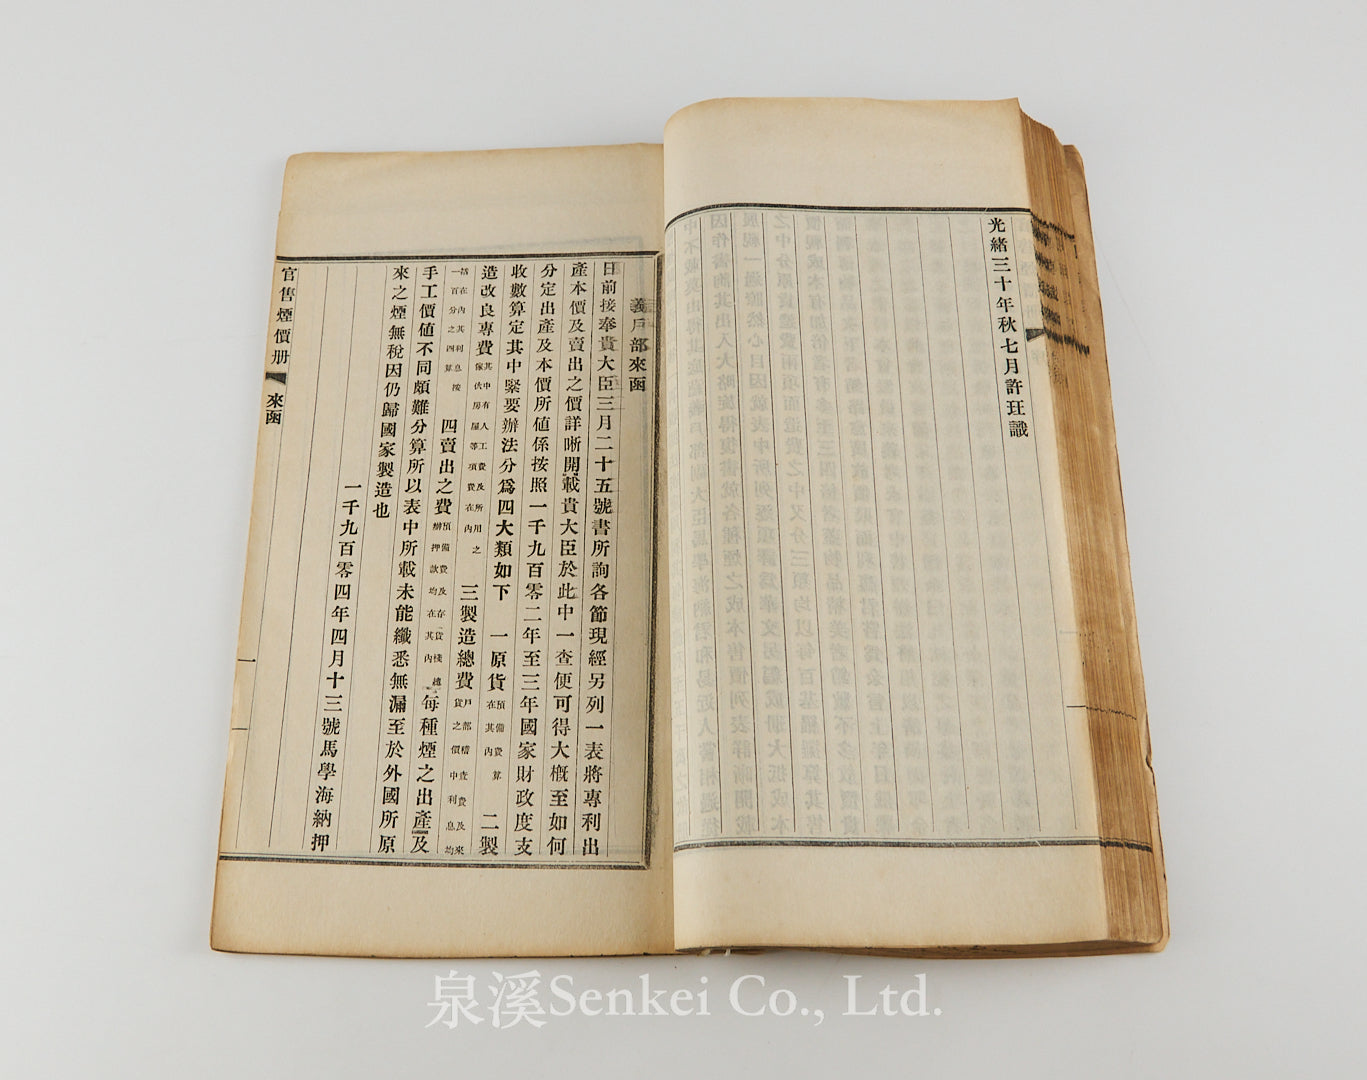 光緒三十年秋七月許珏識
義戶部來函
日前接奉貴大臣三月二十五號書所詢各節現經另列一表將專利出
產本價及賣出之價詳晰開載貴大臣於此中一查便可得大槪至如何
分定出產及本價所値係按照一千九百零二年至三年國家財政度支
收數算定其中緊要辦法分爲四大類如下 一原貨預備費算在其內 二製
造改良專費其中有人工費及所用之傢伙房屋等項費在內 三製造總費戶部稽查費及來貨之價中利息均
括在內其利息按一百分之四算 四賣出之費預備費及存貨棧總辦押款均在其內 每種煙之出產及
手工價値不同頗難分算所以表中所載未能纖悉無漏至於外國所原
來之煙無稅因仍歸國家製造也
一千九百零四年四月十三號馬學海納押
官售煙價册 來函 一
泉溪Senkei Co., Ltd.